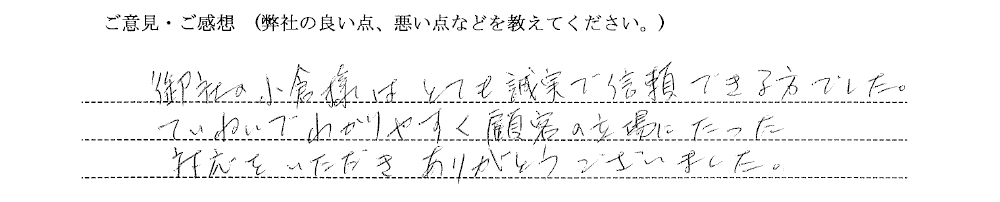 ご意見・ご感想　（弊社の良い点、悪い点などを教えてください。）
御社の小倉様は とても誠実で信頼できる方でした。
ていねいで わかりやすく顧客の立場にたった
対応を いただき ありがとうございました。